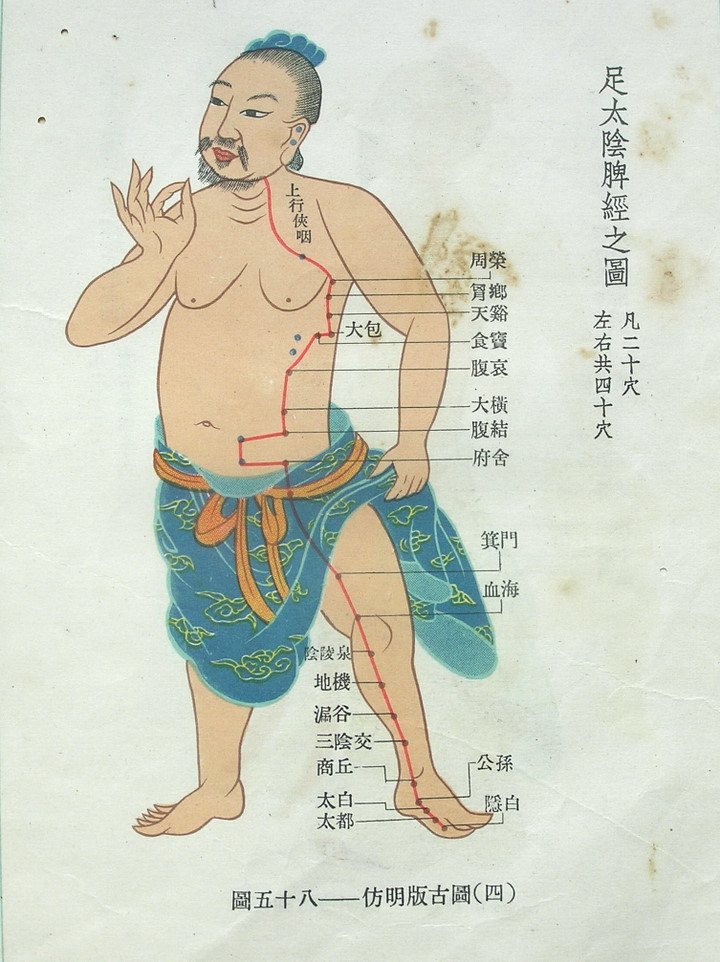 足太陰脾經之圖
凡二十穴
左右共四十穴
上行俠咽
周榮
胷鄉
天谿
大包
食竇
腹哀
大橫
腹結
府舍
箕門
血海
陰陵泉
地機
漏谷
三陰交
商丘
公孫
太白
隱白
太都
圖五十八——仿明版古圖(四)